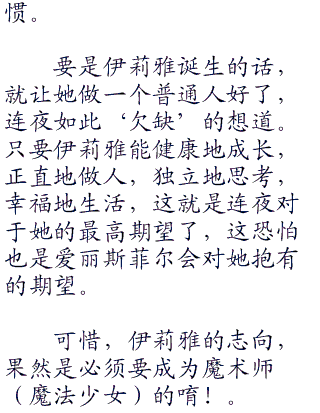 惯。
要是伊莉雅诞生的话，
就让她做一个普通人好了，
连夜如此‘欠缺’的想道。
只要伊莉雅能健康地成长，
正直地做人，独立地思考，
幸福地生活，这就是连夜对
于她的最高期望了，这恐怕
也是爱丽斯菲尔会对她抱有
的期望。
可惜，伊莉雅的志向，
果然是必须要成为魔术师
（魔法少女）的唷！。